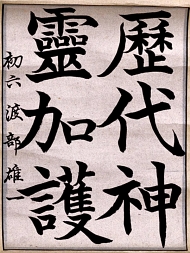 歴代神
靈加護
初六 渡部雄一